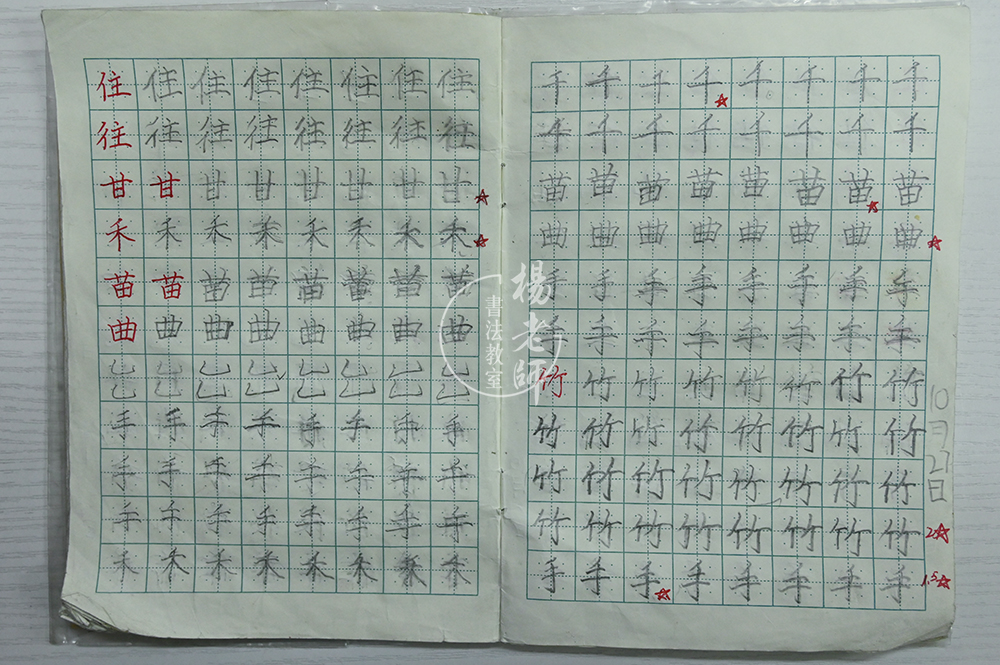 住住住住住住住住
往往往往往往往往
甘甘甘甘甘甘甘甘
禾禾禾禾禾禾禾禾
苗苗苗苗苗苗苗苗
曲曲曲曲曲曲曲曲
手手手手手手手手
手手手手手手手手
手手手手手手手手
禾禾禾禾禾禾禾禾
千千千千千千千千
千千千千千千千千
苗苗苗苗苗苗苗苗
曲曲曲曲曲曲曲曲
手手手手手手手手
手手手手手手手手
竹竹竹竹竹竹竹竹
竹竹竹竹竹竹竹竹
竹竹竹竹竹竹竹竹
竹竹竹竹竹竹竹竹 2☆
手手手手手手手手 1.5☆
10月27日
楊老師
書法教室